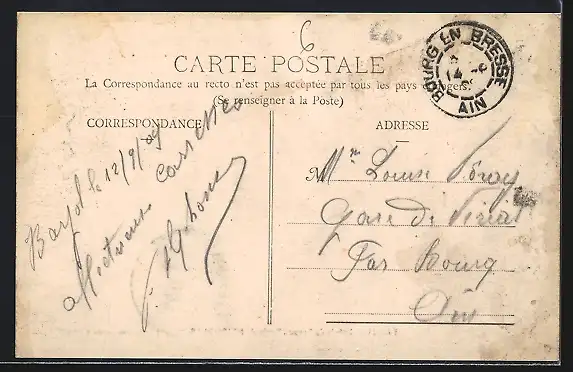 6
CARTE POSTALE
La Correspondance au recto n'est pas acceptée par tous les pays étrangers.
(Se renseigner à la Poste)
BOURG EN BRESSE
AIN
CORRESPONDANCE
ADRESSE
le 12/9/09
affectueuses caresses
Mme Louise
Gare de
Par Bourg
Ain